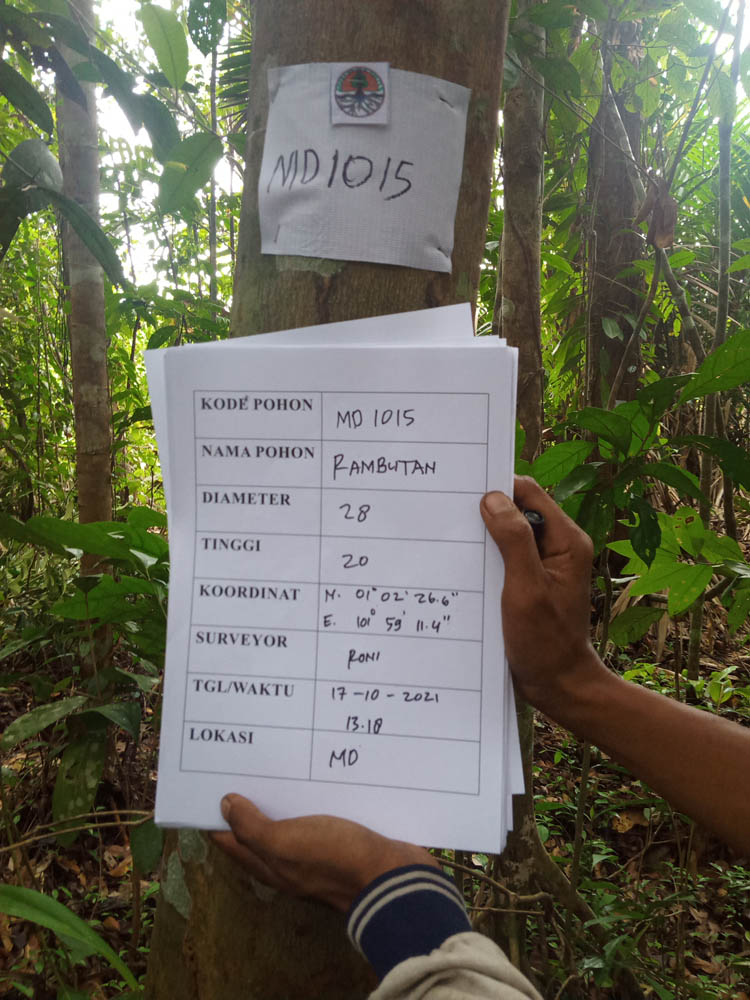 MD1015
KODE POHON MD 1015
NAMA POHON RAMBUTAN
DIAMETER 28
TINGGI 20
KOORDINAT N. 01° 02' 26.6"
E. 101° 59' 11.4"
SURVEYOR RONI
TGL/WAKTU 17-10-2021
13.18
LOKASI MD